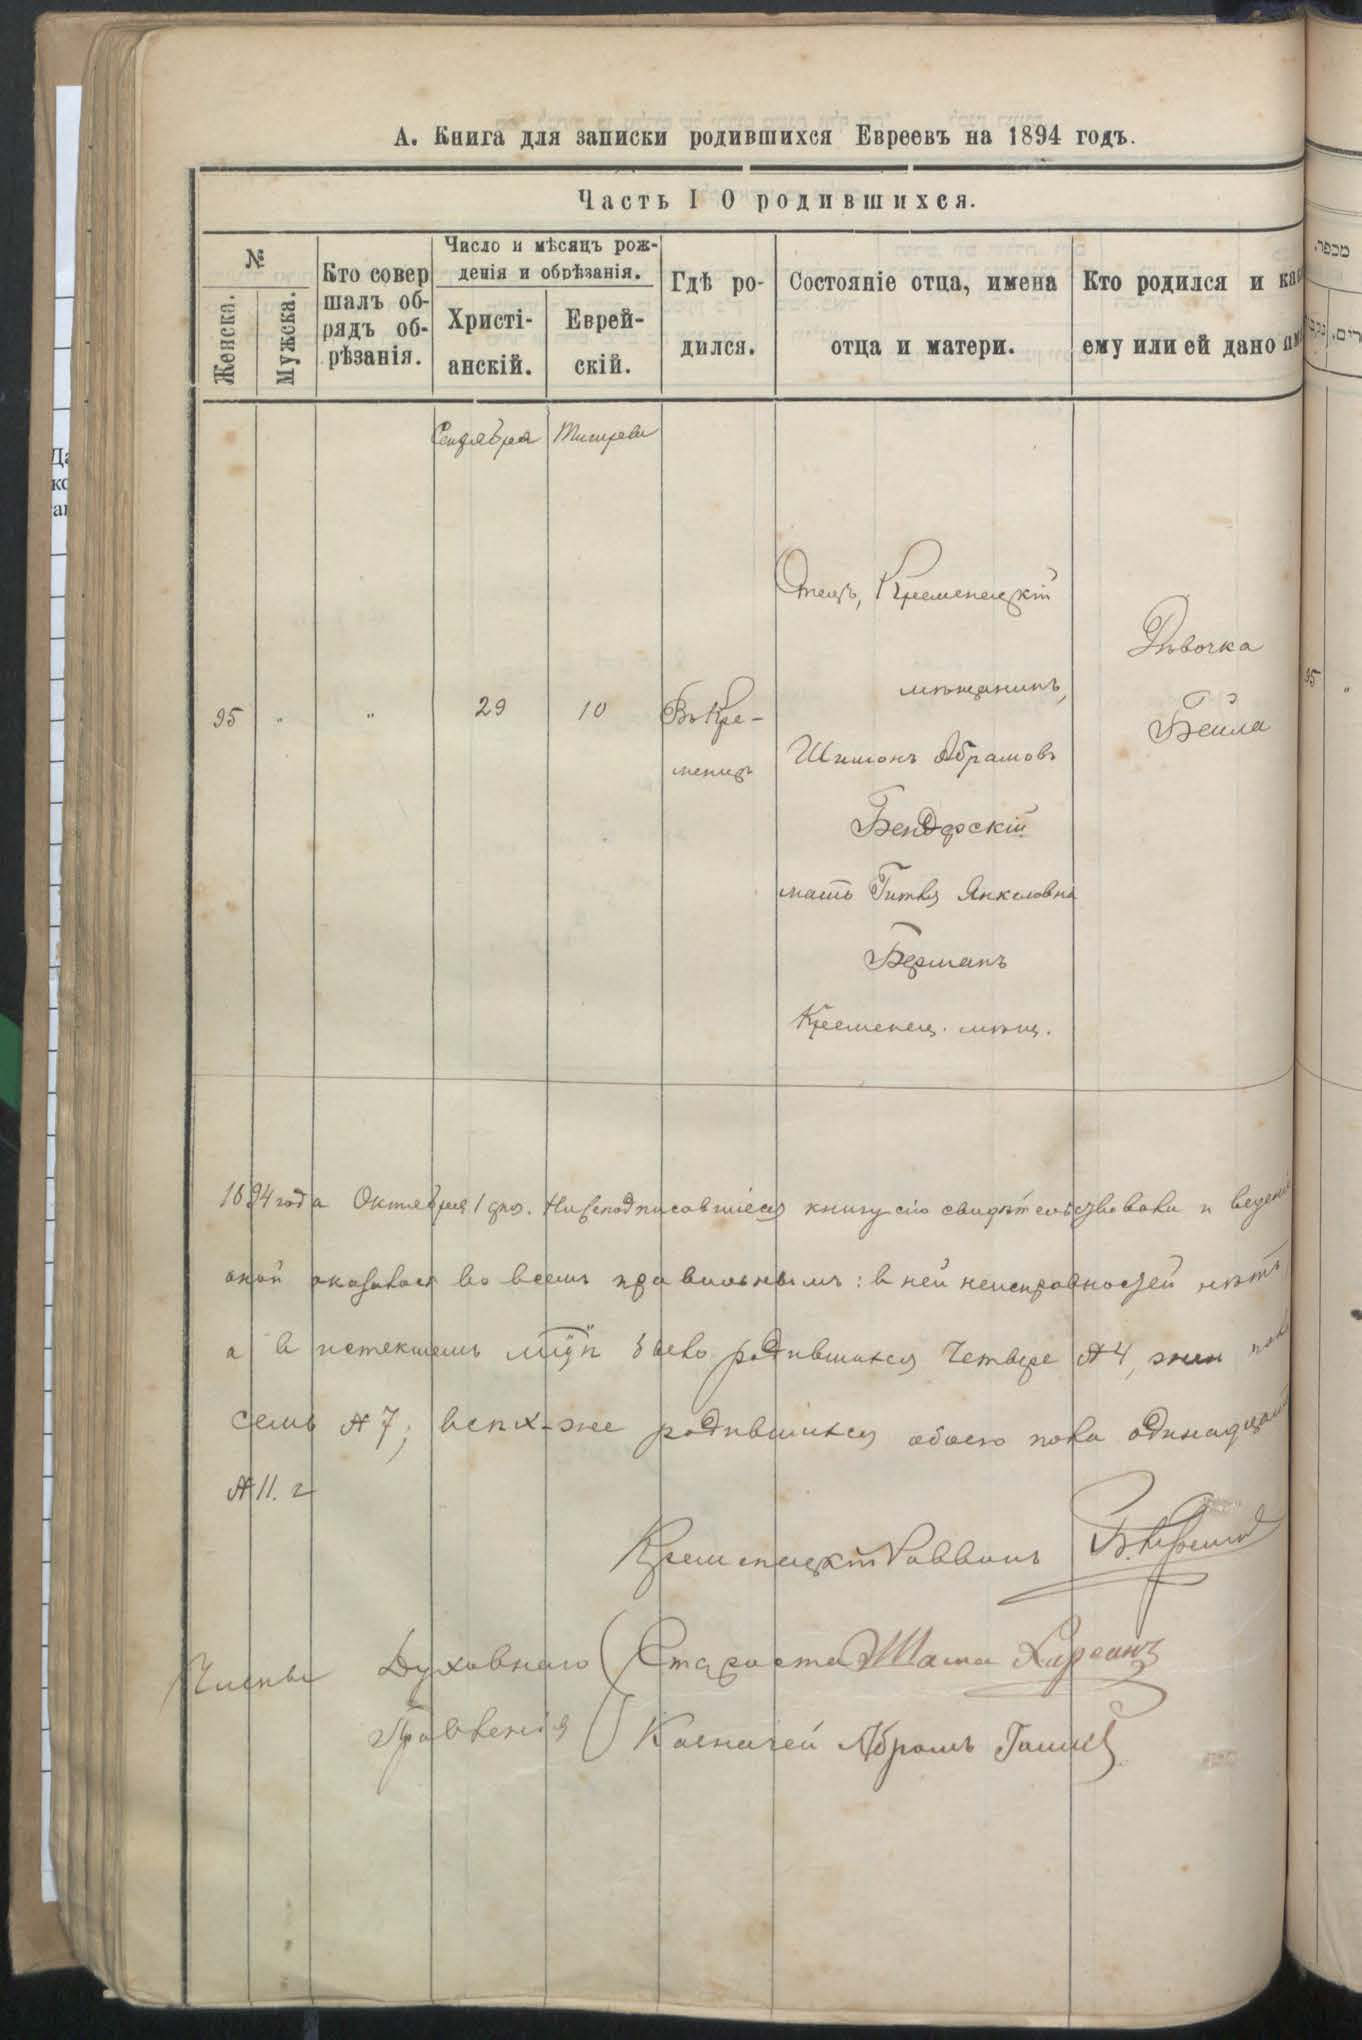 А. Книга для записки родившихся Евреевъ на 1894 годъ.
Часть I О родившихся.
№
Женска.
Мужска.
Кто совер
шалъ об-
рядъ об-
рѣзанія.
Число и мѣсяцъ рож-
денія и обрѣзанія.
Христі-
анскій.
Еврей-
скій.
Гдѣ ро-
дился.
Состояніе отца, имена
отца и матери.
Кто родился и ка
ему или ей дано
Сентября
Тишреи
95 " " 29 10
Въ Кре-
менцѣ
Отецъ, Кременецкій
мѣщанинъ,
Шимонъ Абрамовъ
Бендерскій
мать Гитля Янкеловна
Берманъ
Кременец. мѣщ.
Дѣвочка
Бейла
1894 года Октября 1 дня. Нижеподписавшіеся книгу сію свидѣтельствовали и веденіе
оной оказалося во всемъ правильнымъ: в ней неисправностей нѣтъ
а в истекшемъ родившихся Четыре № 4, жен
семь № 7; всѣхъ-же родившихся обоего пола одинадцать
№ 11. г
Кременецкій Раввинъ
Члены Духовнаго Староста
Правленія Казначей Абрамъ
מכפר
95 "